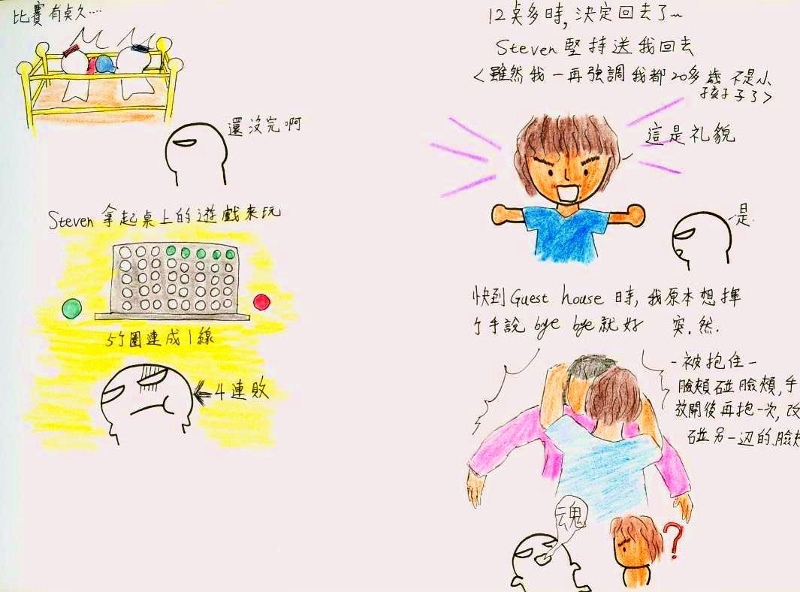 比賽有點久…
還沒完啊
Steven 拿起桌上的遊戲來玩
5個圈連成1線
4連敗
12點多時,決定回去了~
Steven 堅持送我回去
<雖然我一再強調我都20多歲不是小
孩子了>
這是礼貌
是
快到 Guest house 時,我原本想揮
個手說 bye bye 就好 突然.
-被抱住-
臉頰碰臉頰,手
放開後再抱一次,改
碰另一边的臉頰
魂
?